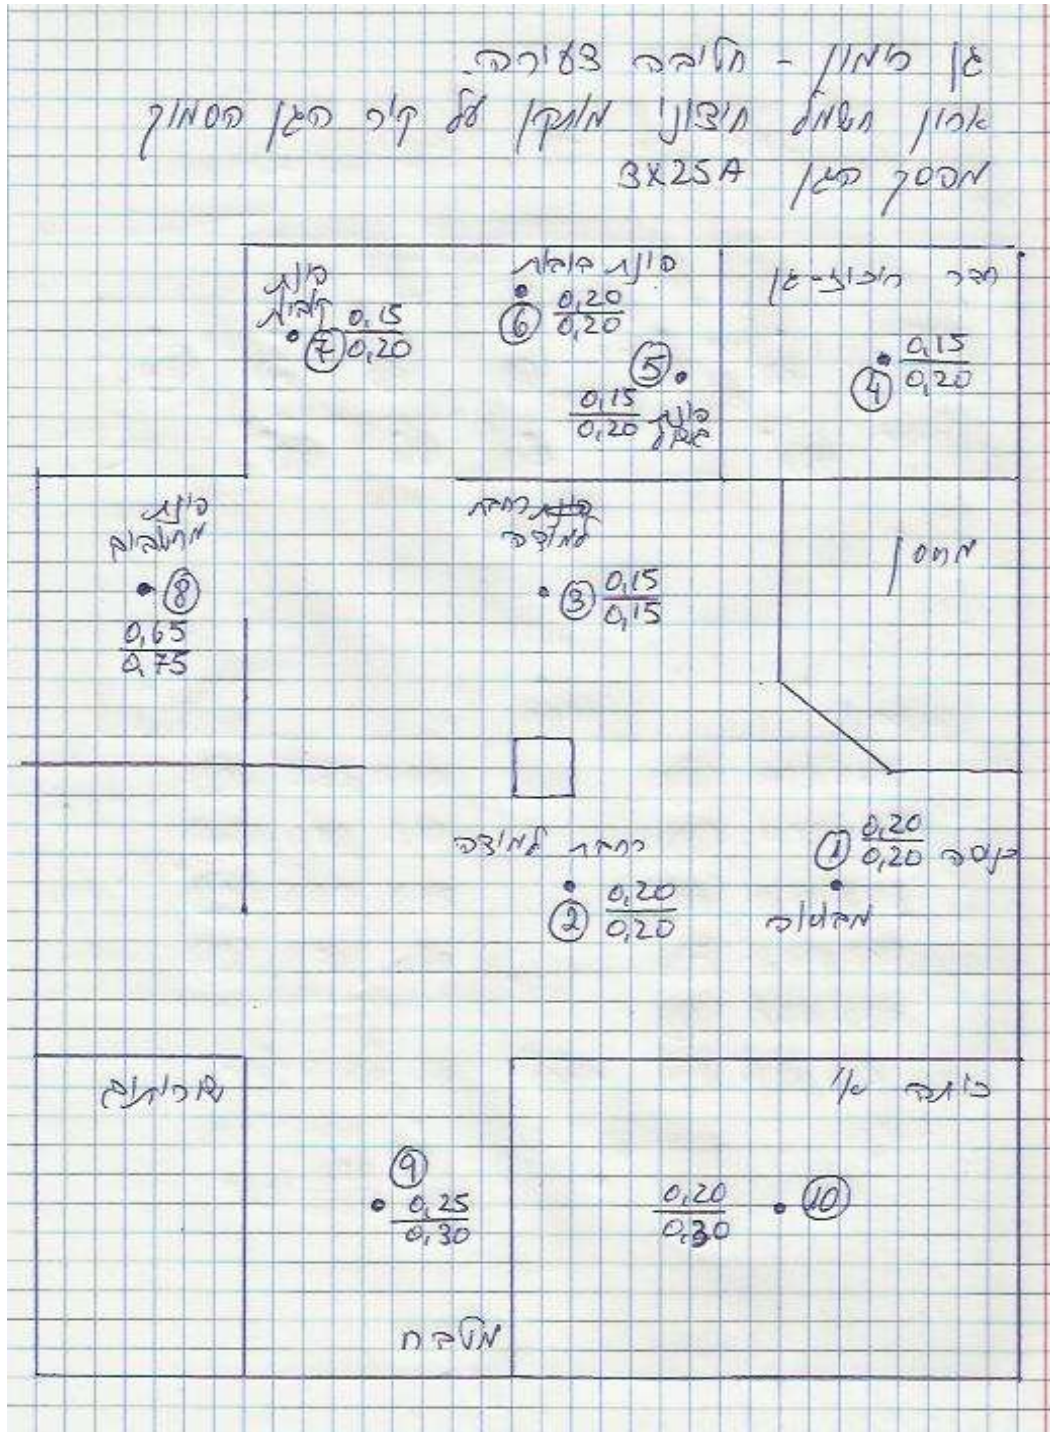 גן רימון - חטיבה צעירה.
ארון חשמל חיצוני מותקן על קיר הגן הסמוך
מפסק הגן 3X25A
פינת
קוביות
7
0,15
0,20
פינת בובות
6
0,20
0,20
5
0,15
0,20
פינת
חדר ריכוז-גן
4
0,15
0,20
פינת
מחשבים
8
0,65
0,75
רחבת
למידה
3
0,15
0,15
מחסן
רחבת למידה
2
0,20
0,20
1
0,20
0,20
כניסה
מבואה
שרותים
9
0,25
0,30
מטבח
כיתה א'1
0,20
0,30
10